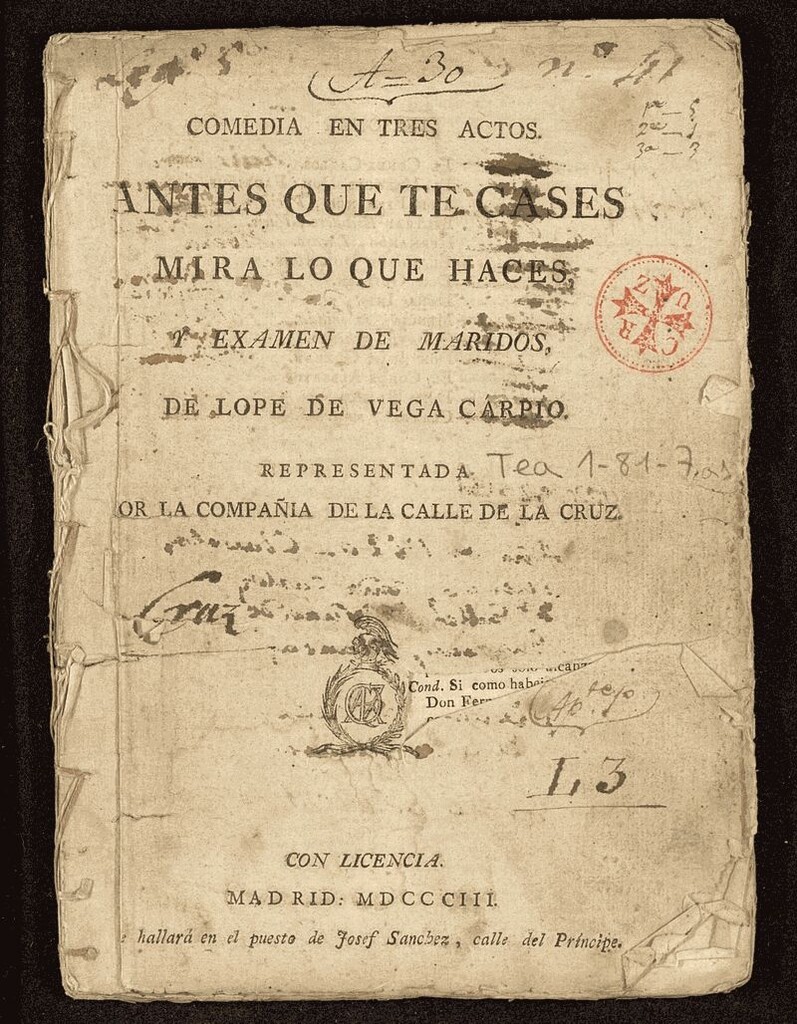 A=30
nº 41
1ª — 5
2ª — 1
3ª — 3
COMEDIA EN TRES ACTOS.
ANTES QUE TE CASES
MIRA LO QUE HACES,
Y EXAMEN DE MARIDOS,
DE LOPE DE VEGA CARPIO.
REPRESENTADA
Tea 1-81-7,
OR LA COMPAÑIA DE LA CALLE DE LA CRUZ.
Cruz
Cond. Si como
Don
L, 3
CON LICENCIA.
MADRID: MDCCCIII.
e hallará en el puesto de Josef Sanchez, calle del Príncipe.